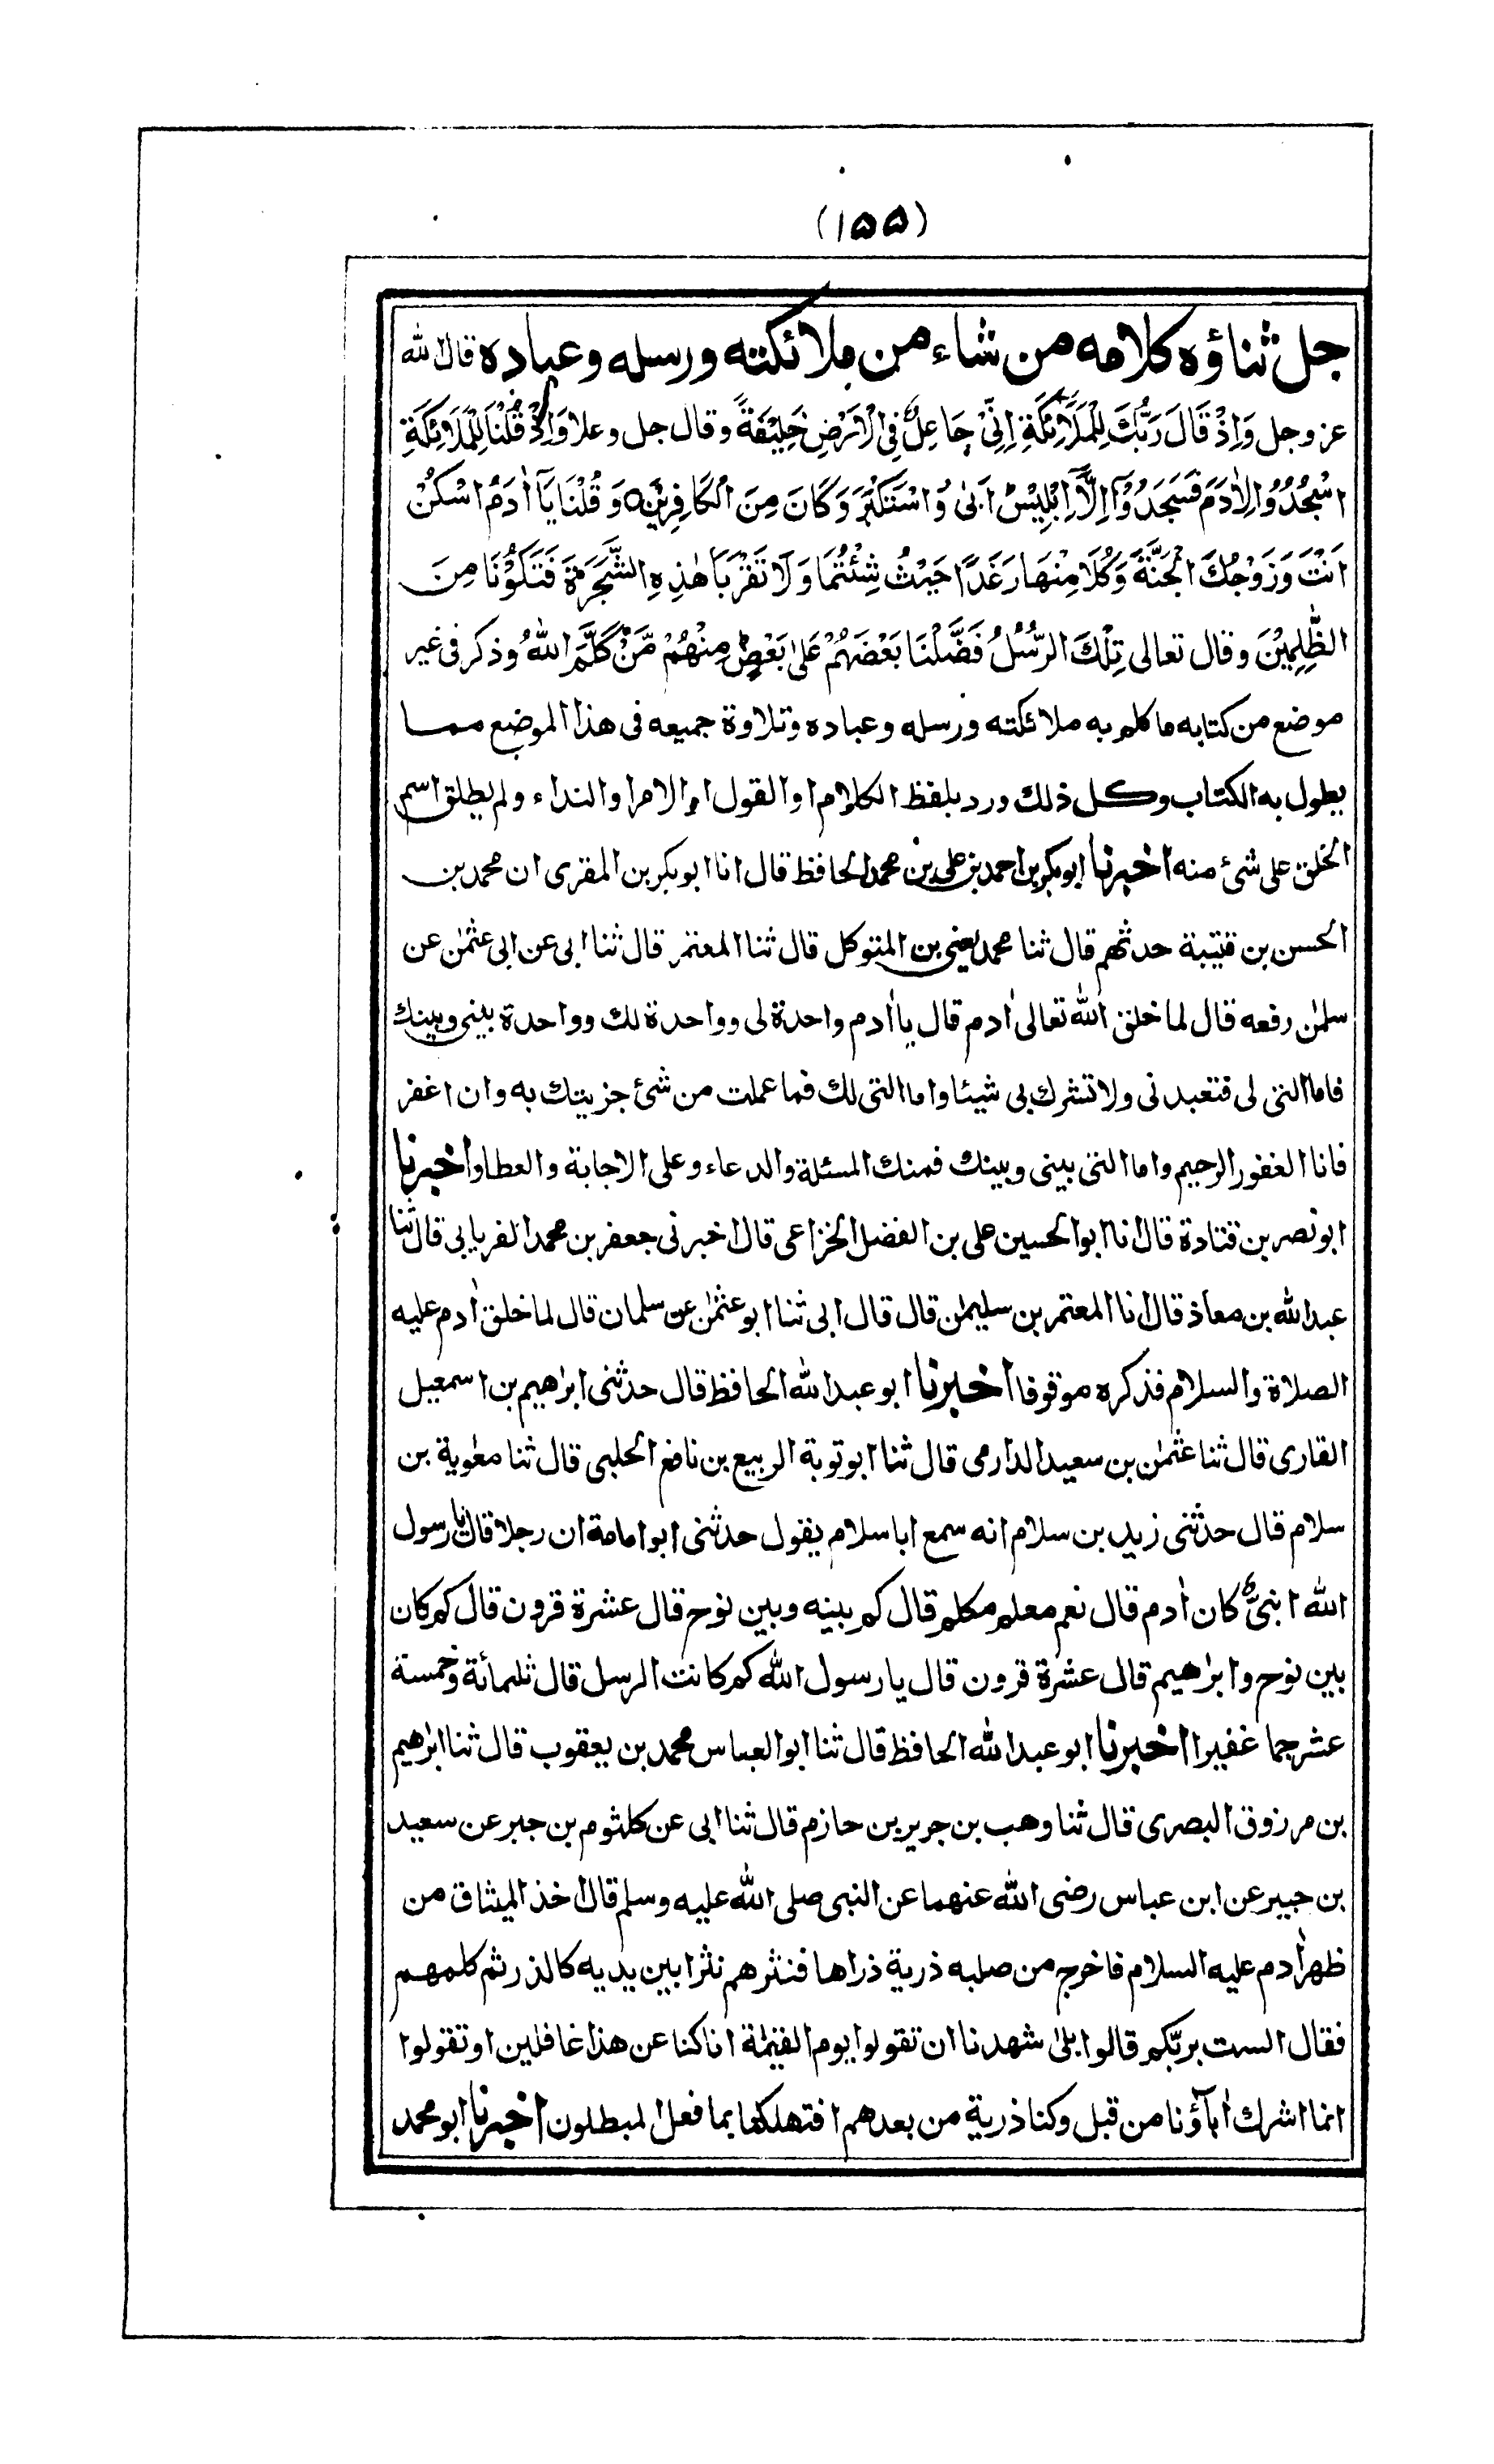 (١٥٥)
جل ثناؤه كلامه من شاء من ملائكته ورسله وعباده قال الله
عز وجل وَاِذْ قَالَ رَبُّكَ لِلْمَلَآئِكَةِ اِنِّیْ جَاعِلٌ فِی الْاَرْضِ خَلِيْفَةً وقال جل وعلا وَاِذْ قُلْنَا لِلْمَلَآئِكَةِ
اسْجُدُوْا لِاٰدَمَ فَسَجَدُوْآ اِلَّآ اِبْلِيْسَ اَبیٰ وَاسْتَكْبَرَ وَكَانَ مِنَ الْكَافِرِيْنَ ○ وَقُلْنَا يَآ اٰدَمُ اسْكُنْ
اَنْتَ وَزَوْجُكَ الْجَنَّةَ وَكُلَا مِنْهَا رَغَدًا حَيْثُ شِئْتُمَا وَلَا تَقْرَبَا هٰذِهِ الشَّجَرَةَ فَتَكُوْنَا مِنَ
الظّٰلِمِيْنَ وقال تعالى تِلْكَ الرُّسُلُ فَضَّلْنَا بَعْضَهُمْ عَلیٰ بَعْضٍ مِنْهُمْ مَّنْ كَلَّمَ اللهُ وذكر فى غير
موضع من كتابه ما كلم به ملائكته ورسله وعباده وتلاوة جميعه فى هذا الموضع مما
يطول به الكتاب وكل ذلك ورد بلفظ الكلام او القول او الامر او النداء ولم يطلق اسم
الخلق على شئ منه اخبرنا ابو بكر بن احمد بن على بن محمد الحافظ قال انا ابو بكر بن المقرى ان محمد بن
الحسن بن قتيبة حدثهم قال ثنا محمد يعنى بن المتوكل قال ثنا المعتمر قال ثنا ابى عن ابى عثمٰن عن
سلمٰن رفعه قال لما خلق الله تعالى اٰدم قال يا اٰدم واحدة لى وواحدة لك وواحدة بينى وبينك
فاما التى لى فتعبدنى ولا تشرك بى شيئا واما التى لك فما عملت من شئ جزيتك به وان اغفر
فانا الغفور الرحيم واما التى بينى وبينك فمنك المسئلة والدعاء وعلى الاجابة والعطا واخبرنا
ابو نصر بن قتادة قال انا ابو الحسين على بن الفضل الخزاعى قال اخبرنى جعفر بن محمد الفريابى قال ثنا
عبد الله بن معاذ قال انا المعتمر بن سليمٰن قال قال ابى ثنا ابو عثمٰن عن سلمان قال لما خلق اٰدم عليه
الصلاة والسلام فذكره موقوفا اخبرنا ابو عبد الله الحافظ قال حدثنى ابرٰهيم بن اسمعيل
القارى قال ثنا عثمٰن بن سعيد الدارمى قال ثنا ابو توبة الربيع بن نافع الحلبى قال ثنا معٰوية بن
سلام قال حدثنى زيد بن سلام انه سمع ابا سلام يقول حدثنى ابو امامة ان رجلا قال يا رسول
الله انبىٌّ كان اٰدم قال نعم معلم مكلم قال كم بينه وبين نوح قال عشرة قرون قال كم كان
بين نوح وابرٰهيم قال عشرة قرون قال يا رسول الله كم كانت الرسل قال ثلمائة وخمسة
عشر جما غفيرا اخبرنا ابو عبد الله الحافظ قال ثنا ابو العباس محمد بن يعقوب قال ثنا ابرٰهيم
بن مرزوق البصرى قال ثنا وهب بن جرير بن حازم قال ثنا ابى عن كلثوم بن جبر عن سعيد
بن جبير عن ابن عباس رضى الله عنهما عن النبى صلى الله عليه وسلم قال اخذ الميثاق من
ظهر اٰدم عليه السلام فاخرج من صلبه ذرية ذراها فنثرهم نثرا بين يديه كالذر ثم كلمهم
فقال الست بربّكم قالوا بلیٰ شهدنا ان تقولوا يوم القيٰمة انا كنا عن هذا غافلين او تقولوا
انما اشرك اٰبآؤنا من قبل وكنا ذرية من بعدهم افتهلكنا بما فعل المبطلون اخبرنا ابو محمد